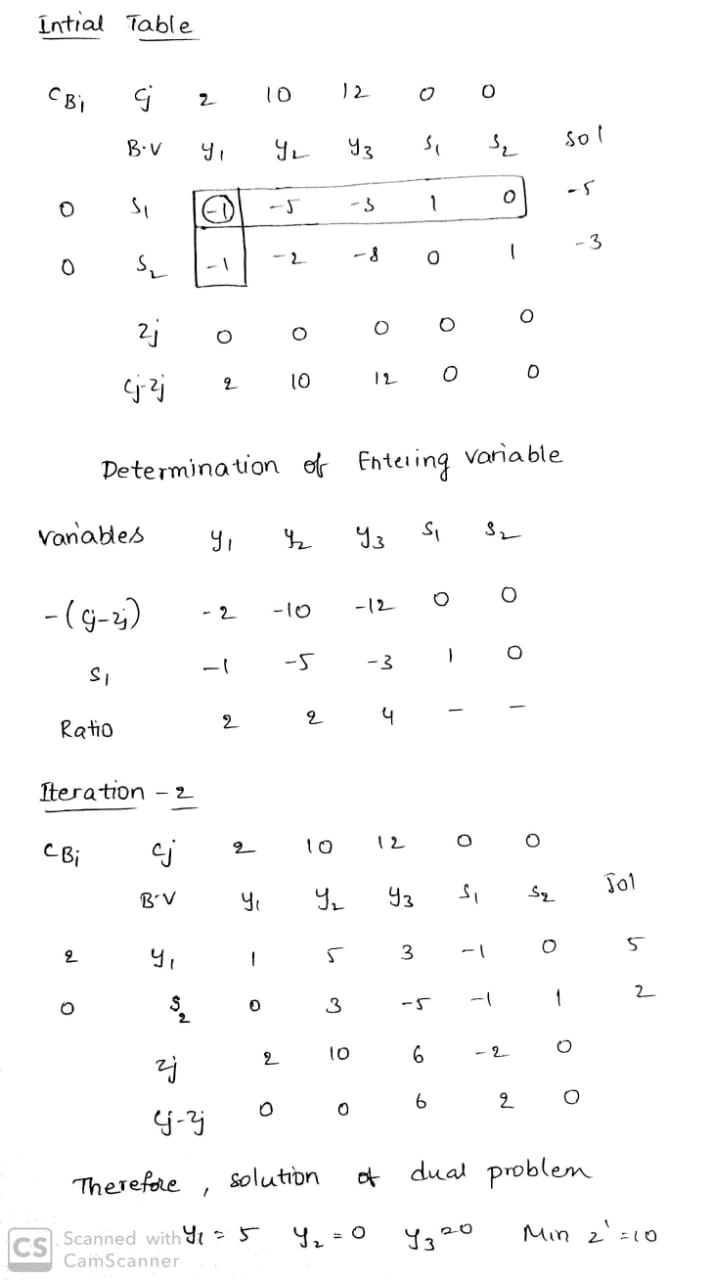 Intial Table
CBi Cj 2 10 12 0 0
B.V y1 y2 y3 S1 S2 Sol
0 S1 -1 -5 -3 1 0 -5
0 S2 -1 -2 -8 0 1 -3
Zj 0 0 0 0 0
Cj-Zj 2 10 12 0 0
Determination of Entering variable
variables y1 y2 y3 S1 S2
-(Cj-Zj) -2 -10 -12 0 0
S1 -1 -5 -3 1 0
Ratio 2 2 4 - -
Iteration - 2
CBi Cj 2 10 12 0 0
B.V y1 y2 y3 S1 S2 Sol
2 y1 1 5 3 -1 0 5
0 S2 0 3 -5 -1 1 2
Zj 2 10 6 -2 0
Cj-Zj 0 0 6 2 0
Therefore , solution of dual problem
y1 = 5 y2 = 0 y3 = 0 Min z' = 10
CS Scanned with
CamScanner